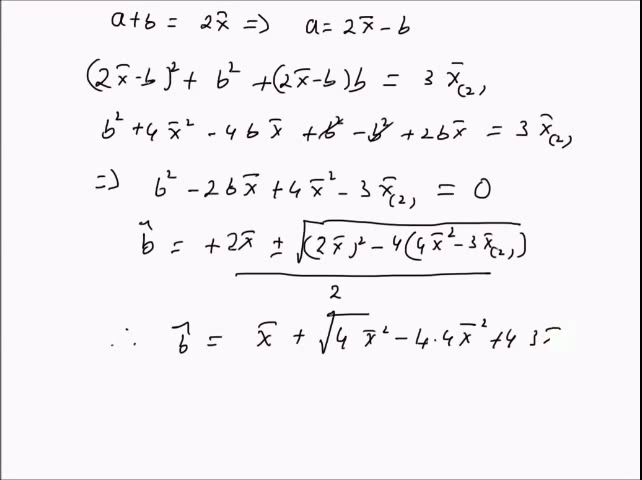 a+b = 2x̄ => a = 2x̄ - b
(2x̄-b)² + b² + (2x̄-b)b = 3 x̄₍₂₎
b² + 4x̄² - 4bx̄ + b² - b² + 2bx̄ = 3 x̄₍₂₎
=> b² - 2bx̄ + 4x̄² - 3x̄₍₂₎ = 0
b̂ = +2x̄ ± √((2x̄)² - 4(4x̄² - 3x̄₍₂₎))
2
∴ b̂ = x̄ + √(4x̄² - 4.4x̄² + 4 3x̄